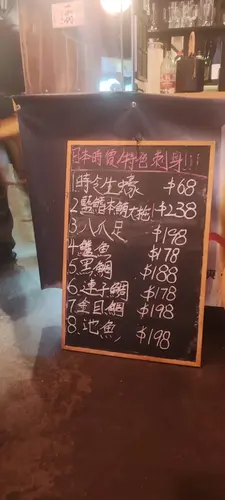 日本時價/特色刺身!!!
1.時令生蠔 $68
2.藍鰭本鮪大拖 $238
3.八爪足 $198
4.鱲魚 $178
5.黑鯛 $188
6.連子鯛 $178
7.金目鯛 $198
8.池魚 $198